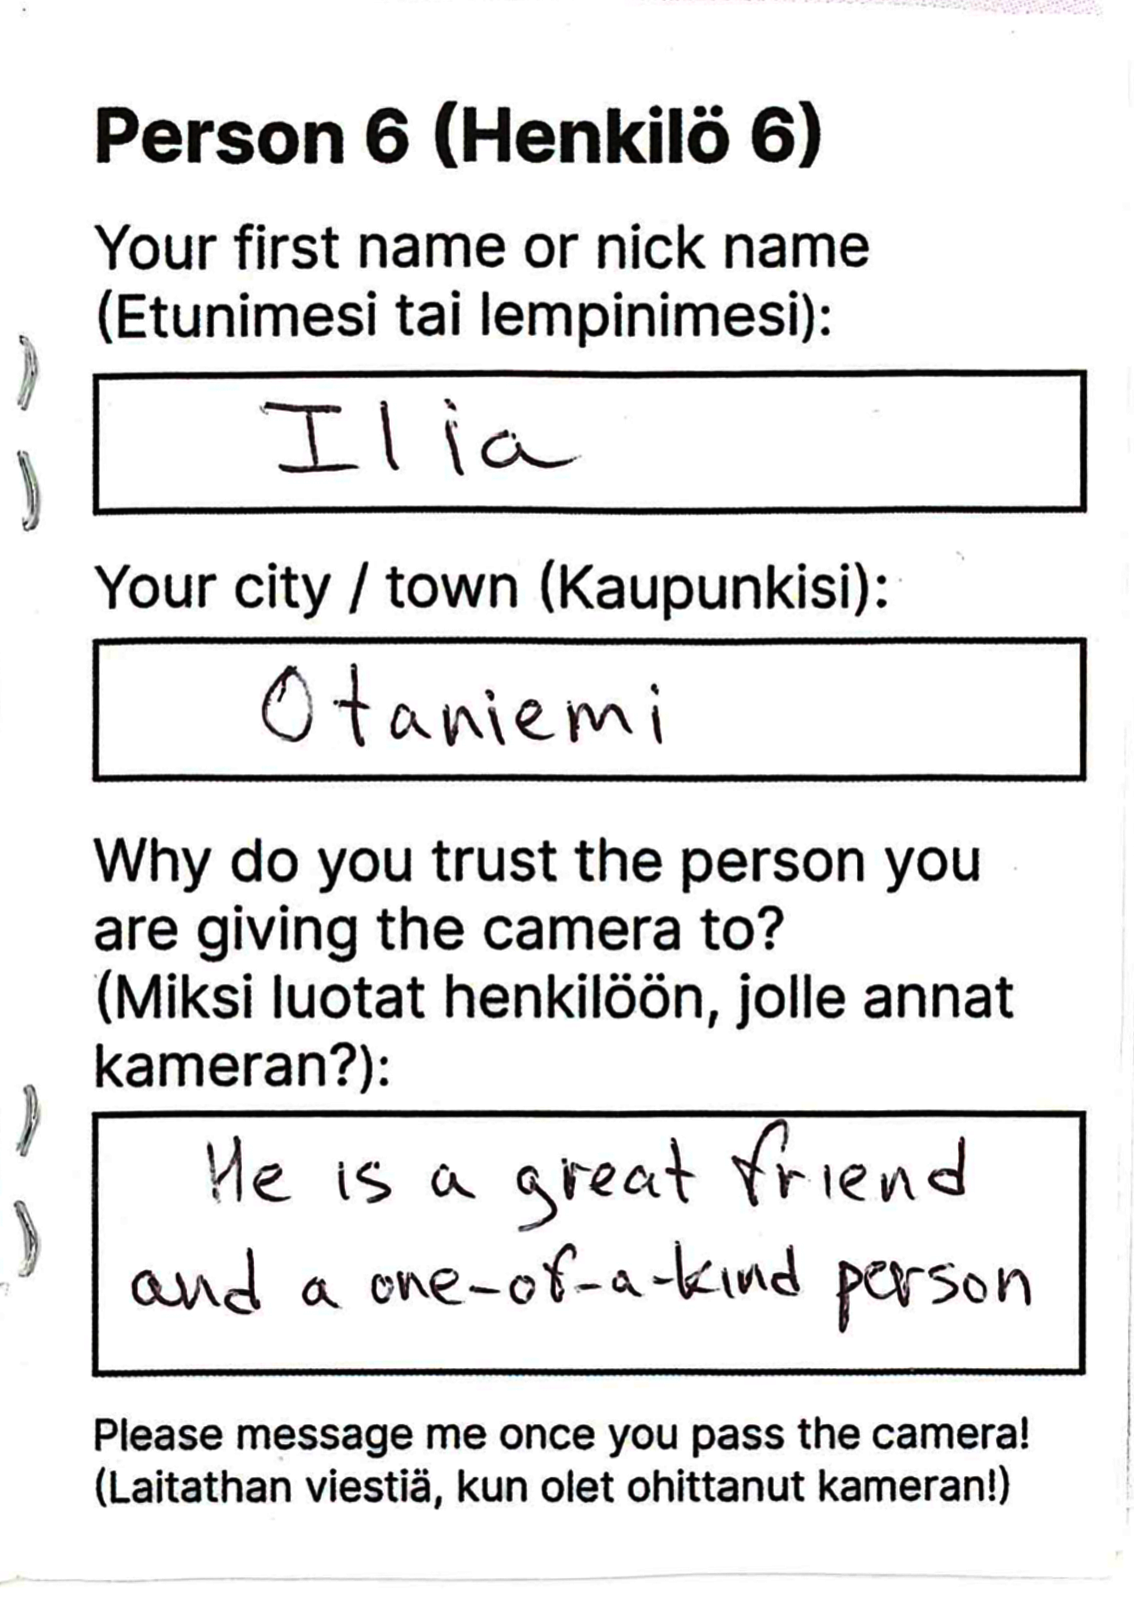 Person 6 (Henkilö 6)
Your first name or nick name
(Etunimesi tai lempinimesi):
Ilia
Your city / town (Kaupunkisi):
Otaniemi
Why do you trust the person you
are giving the camera to?
(Miksi luotat henkilöön, jolle annat
kameran?):
He is a great friend
and a one-of-a-kind person
Please message me once you pass the camera!
(Laitathan viestiä, kun olet ohittanut kameran!)